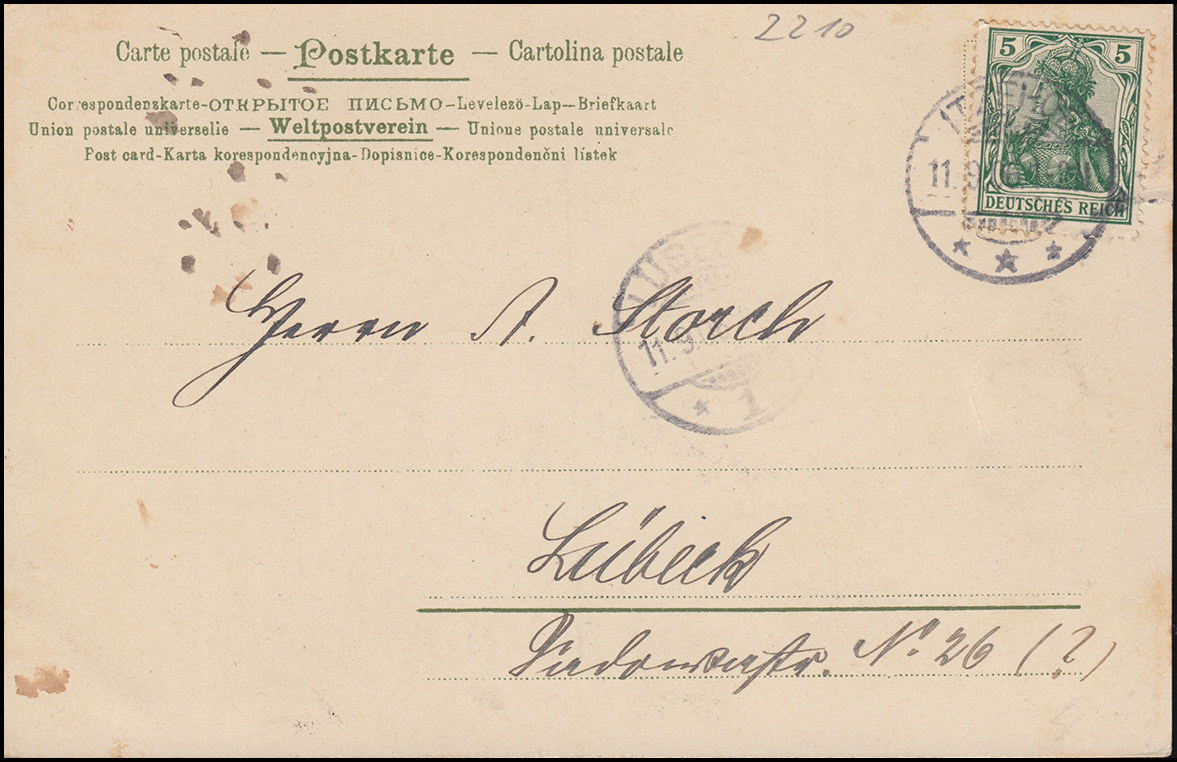 2210
Carte postale — Postkarte — Cartolina postale
Correspondenzkarte-ОТКРЫТОЕ ПИСЬМО-Levelező-Lap-Briefkaart
Union postale universelle — Weltpostverein — Unione postale universale
Post card-Karta korespondencyjna-Dopisnice-Korespondenční lístek
5 5
DEUTSCHES REICH
11.9.
2
LÜBECK
11.9.
1
Herrn A. Storch
Lübeck
Sadowastr. No 26 (?)